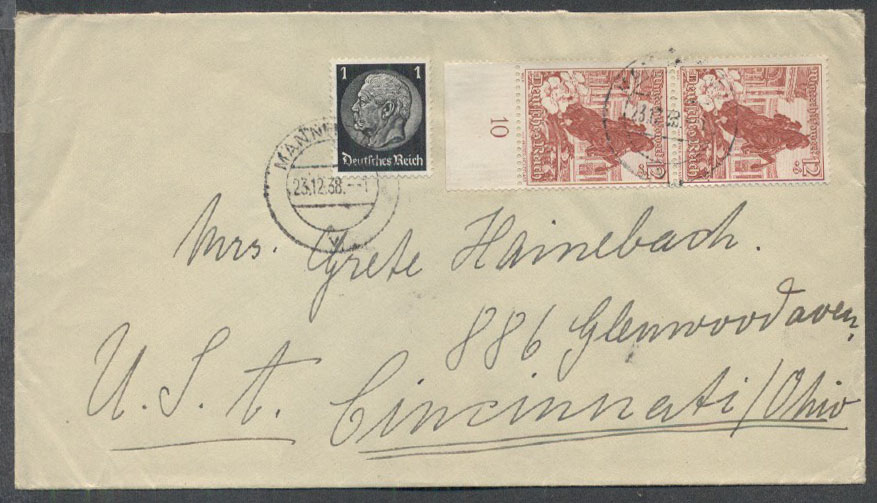 1 1
Deutsches Reich
10
Deutsches Reich
12
Deutsches Reich
12
MANN
23.12.38.--1
Mrs. Grete Hainebach.
886 Glenwood aven.
U.S.A. Cincinnati/Ohio